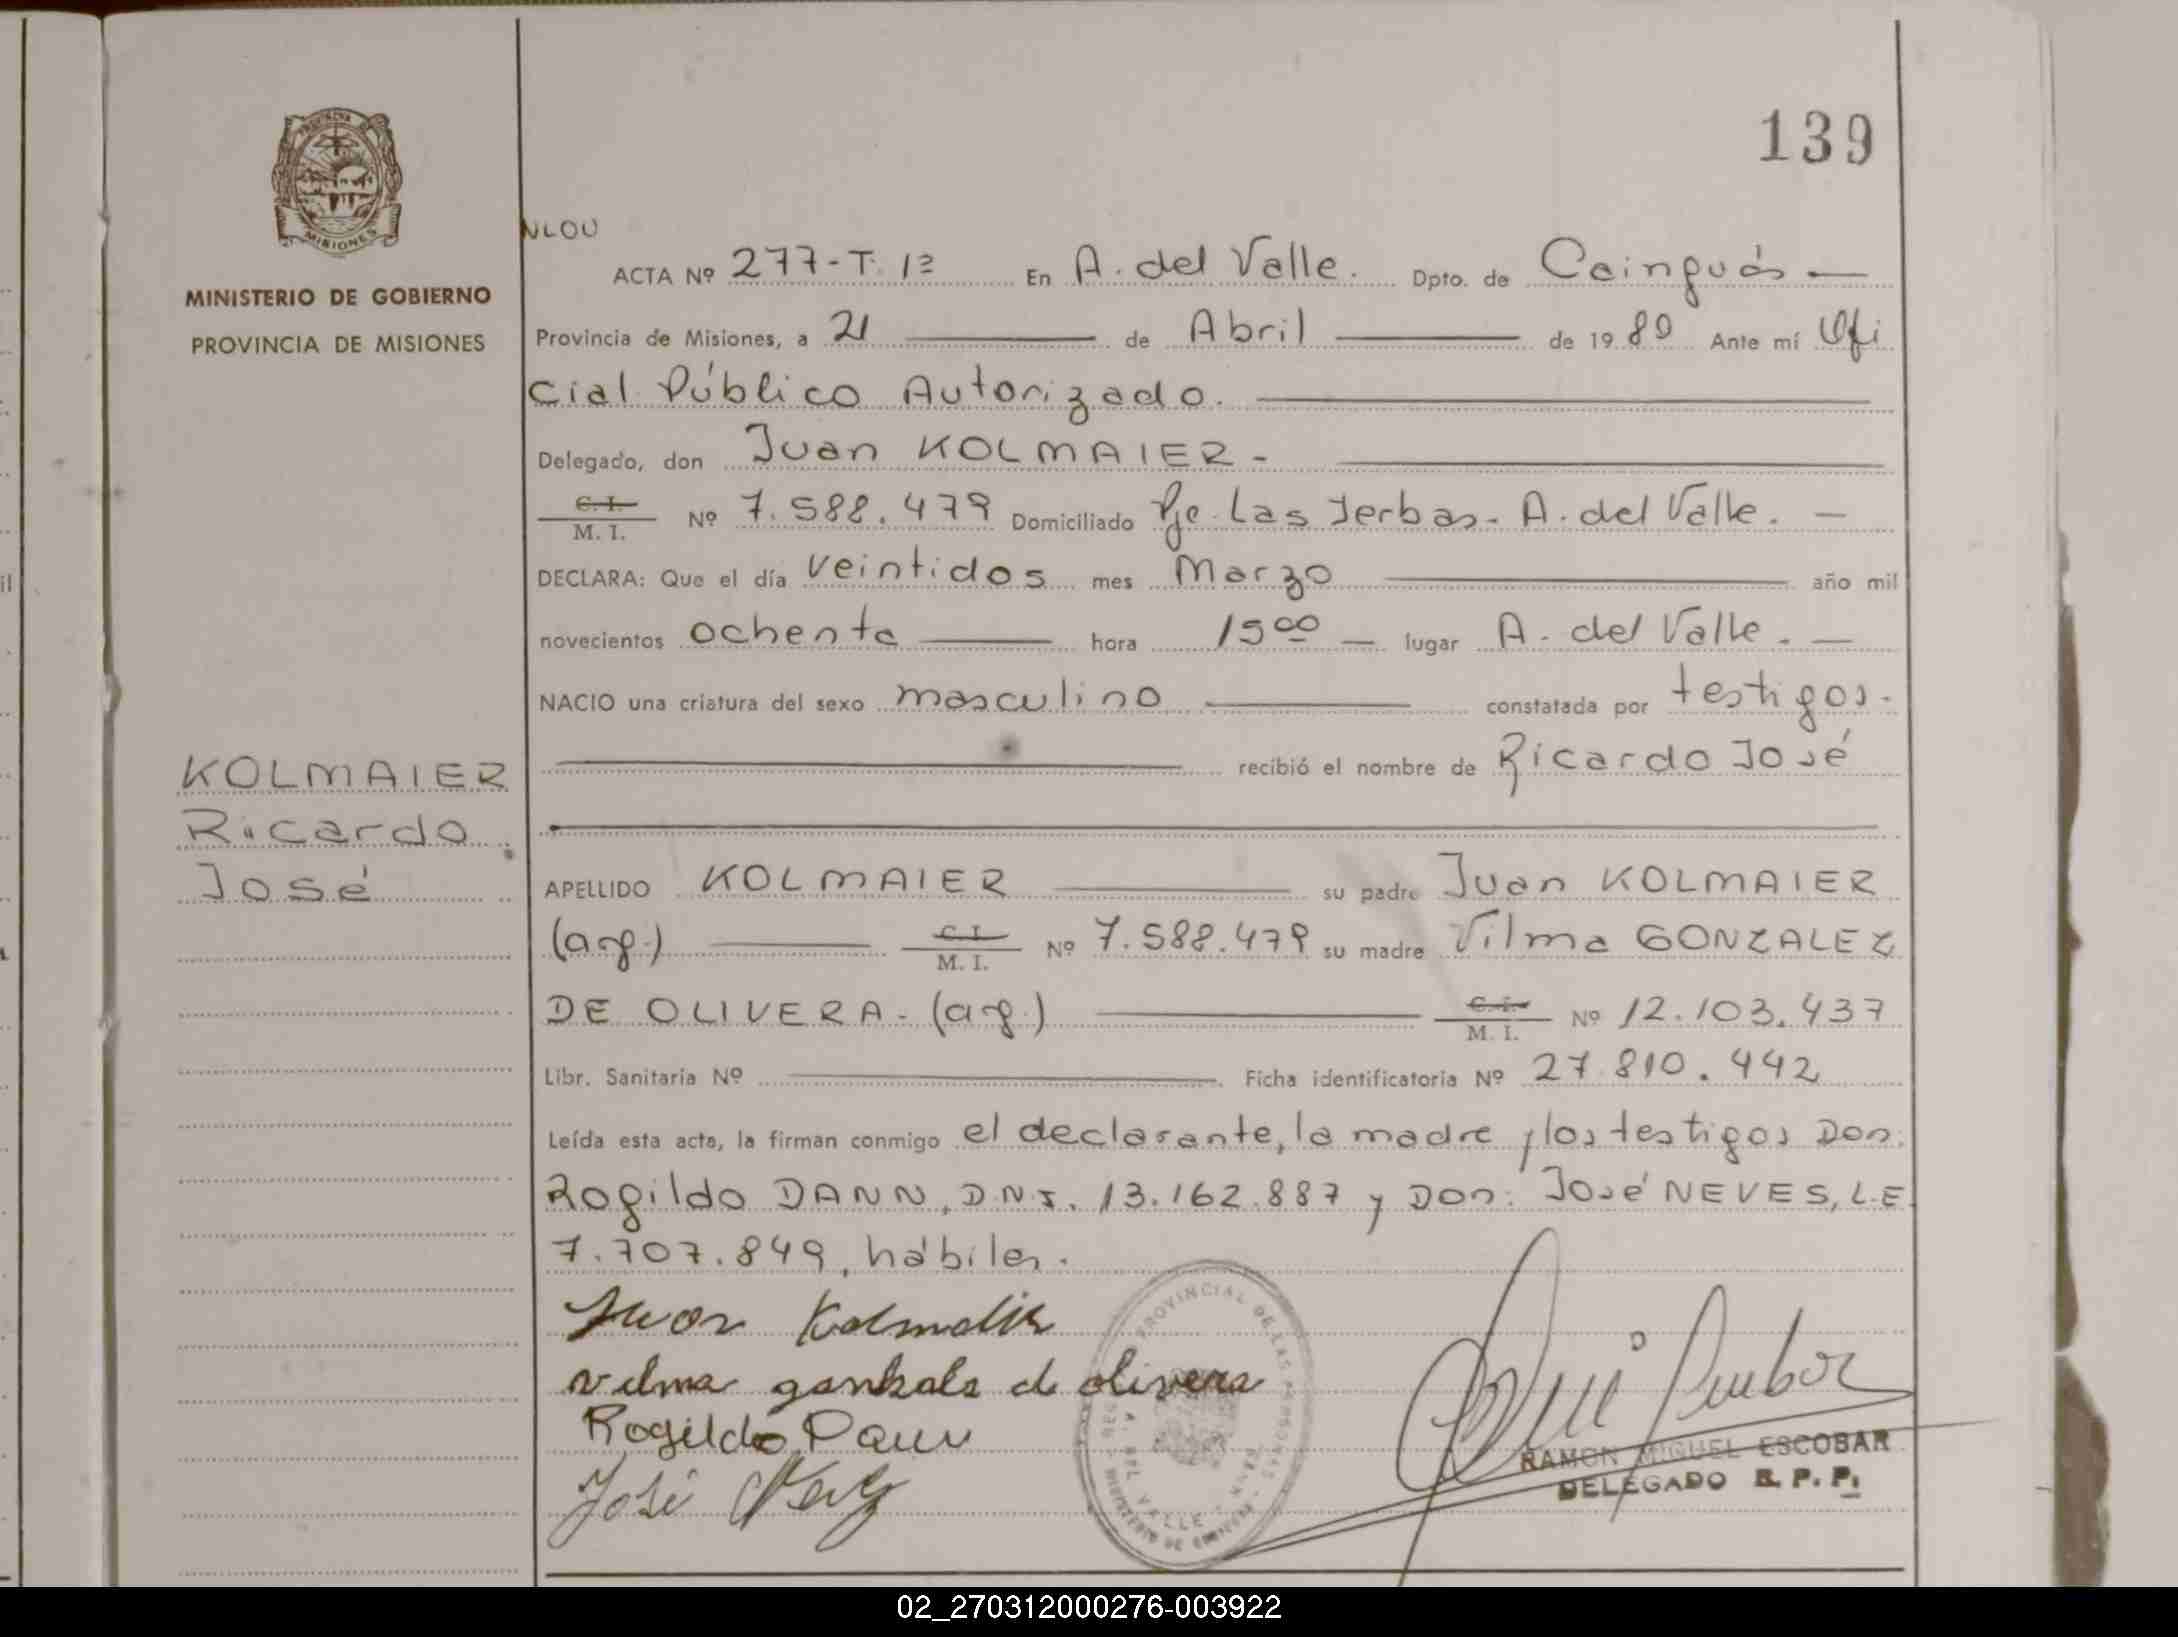 139
PROVINCIA DE
MISIONES
MINISTERIO DE GOBIERNO
PROVINCIA DE MISIONES
NLOU
ACTA Nº 277-T. 1ª En A. del Valle. Dpto. de Cainguás —
Provincia de Misiones, a 21 — de Abril — de 1980 Ante mí Ofi
cial Público Autorizado. —
Delegado, don Juan KOLMAIER - —
C. I.
M. I. Nº 7.588.479 Domiciliado Pje. Las Yerbas - A. del Valle. —
DECLARA: Que el día veintidos mes Marzo — año mil
novecientos ochenta — hora 15 00 — lugar A. del Valle. —
NACIO una criatura del sexo masculino — constatada por testigos.
— recibió el nombre de Ricardo José
KOLMAIER
Ricardo
José
APELLIDO KOLMAIER — su padre Juan KOLMAIER
(arg.) — C. I.
M. I. Nº 7.588.479 su madre Vilma GONZALEZ
DE OLIVERA - (arg.) — C. I.
M. I. Nº 12.103.437
Libr. Sanitaria Nº — Ficha identificatoria Nº 27.810.442
Leída esta acta, la firman conmigo el declarante, la madre y los testigos Don:
Rogildo DANN, D.N.I. 13.162.887 y Don: José NEVES, L.E
7.707.849, hábiles.
Juan Kolmaier
vilma gonzalz de olivera
Rogildo Dann
José
PROVINCIAL DE LAS PERSONAS
A. DEL VALLE
MINISTERIO DE GOBIERNO
RAMON MIGUEL ESCOBAR
DELEGADO R. P. P.
02_270312000276-003922